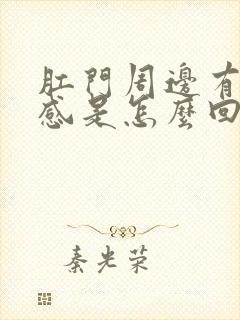 肛門周邊有
感是怎麼回
秦光荣